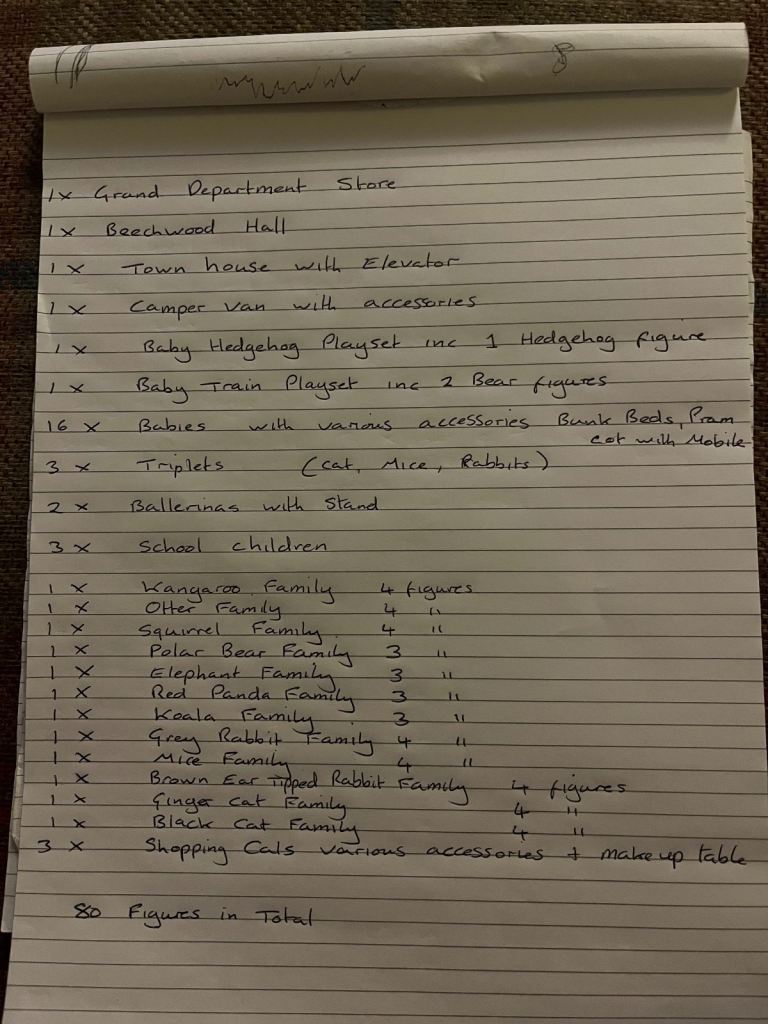 1x Grand Department Store
1 x Beechwood Hall
1 x Town house with Elevator
1 x Camper van with accessories
1 x Baby Hedgehog Playset inc 1 Hedgehog figure
1 x Baby Train Playset inc 2 Bear figures
16 x Babies with various accessories Bunk Beds, Pram
cot with Mobile
3 x Triplets (Cat, Mice, Rabbits)
2 x Ballerinas with Stand
3 x School children
1 x Kangaroo Family 4 figures
1 x Otter Family 4 "
1 x Squirrel Family 4 "
1 x Polar Bear Family 3 "
1 x Elephant Family 3 "
1 x Red Panda Family 3 "
1 x Koala Family 3 "
1 x Grey Rabbit Family 4 "
1 x Mice Family 4 "
1 x Brown Ear Tipped Rabbit Family 4 figures
1 x Ginger Cat Family 4 "
1 x Black Cat Family 4 "
3 x Shopping Cals various accessories + make up table
80 Figures in Total